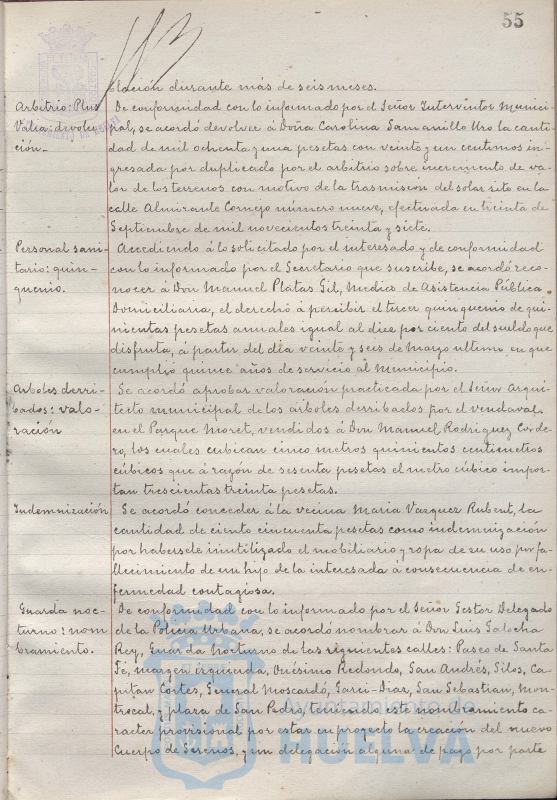 55
blación durante más de seis meses.
Arbitrio: Plus
Valia: devolu-
ción.-
De conformidad con lo informado por el Señor Interventor Munici-
pal, se acordó devolver á Doña Carolina Samanillo Uro la canti-
dad de mil ochenta y una pesetas con veinte y un centimos in-
gresada por duplicado por el arbitrio sobre incremento de va-
lor de los terrenos con motivo de la trasmision del solar sito en la
calle Almirante Cornejo número nueve, efectuada en treinta de
Septiembre de mil novecientos treinta y siete.
Personal sani-
tario: quin-
quenio.
Accediendo á lo solicitado por el interesado y de conformidad
con lo informado por el Secretario que suscribe, se acordó reco-
nocer á Don Manuel Platas Gil, Medico de Asistencia Pública
Domiciliaria, el derecho á percibir el tercer quinquenio de qui-
nientas pesetas anuales igual al diez por ciento del sueldo que
disfruta, á partir del día veinte y seis de Marzo ultimo en que
cumplió quince años de servicio al Municipio.
Arboles derri-
bados: valo-
ración
Se acordó aprobar valoración practicada por el Señor Arqui-
tecto municipal de los árboles derribados por el vendaval
en el Parque Moret, vendidos á Don Manuel Rodriguez Corde-
ro, los cuales cubican cinco metros quinientos centimetros
cúbicos que á razón de sesenta pesetas el metro cúbico impor-
tan trescientas treinta pesetas.
Indemnización
Se acordó conceder á la vecina Maria Vazquez Rubent, la
cantidad de ciento cincuenta pesetas como indemnización
por habersele inutilizado el mobiliario y ropa de su uso por fa-
llecimiento de un hijo de la interesada á consecuencia de en-
fermedad contagiosa.
Guarda noc-
turno: nom
bramiento.
De conformidad con lo informado por el Señor Gestor Delegado
de la Policia Urbana, se acordó nombrar á Don Luis Galocha
Rey, Guarda Nocturno de las siguientes calles: Paseo de Santa
Fé, margen izquierda, Onésimo Redondo, San Andrés, Silos, Ca-
pitan Cortes, General Moscardó, Garci-Diaz, San Sebastian, Mon-
trocal, y plaza de San Pedro, teniendo este nombramiento ca-
racter provisional por estar en proyecto la creación del nuevo
Cuerpo de Serenos, y sin delegación alguna de pago por parte
Ayuntamiento de
HUELVA